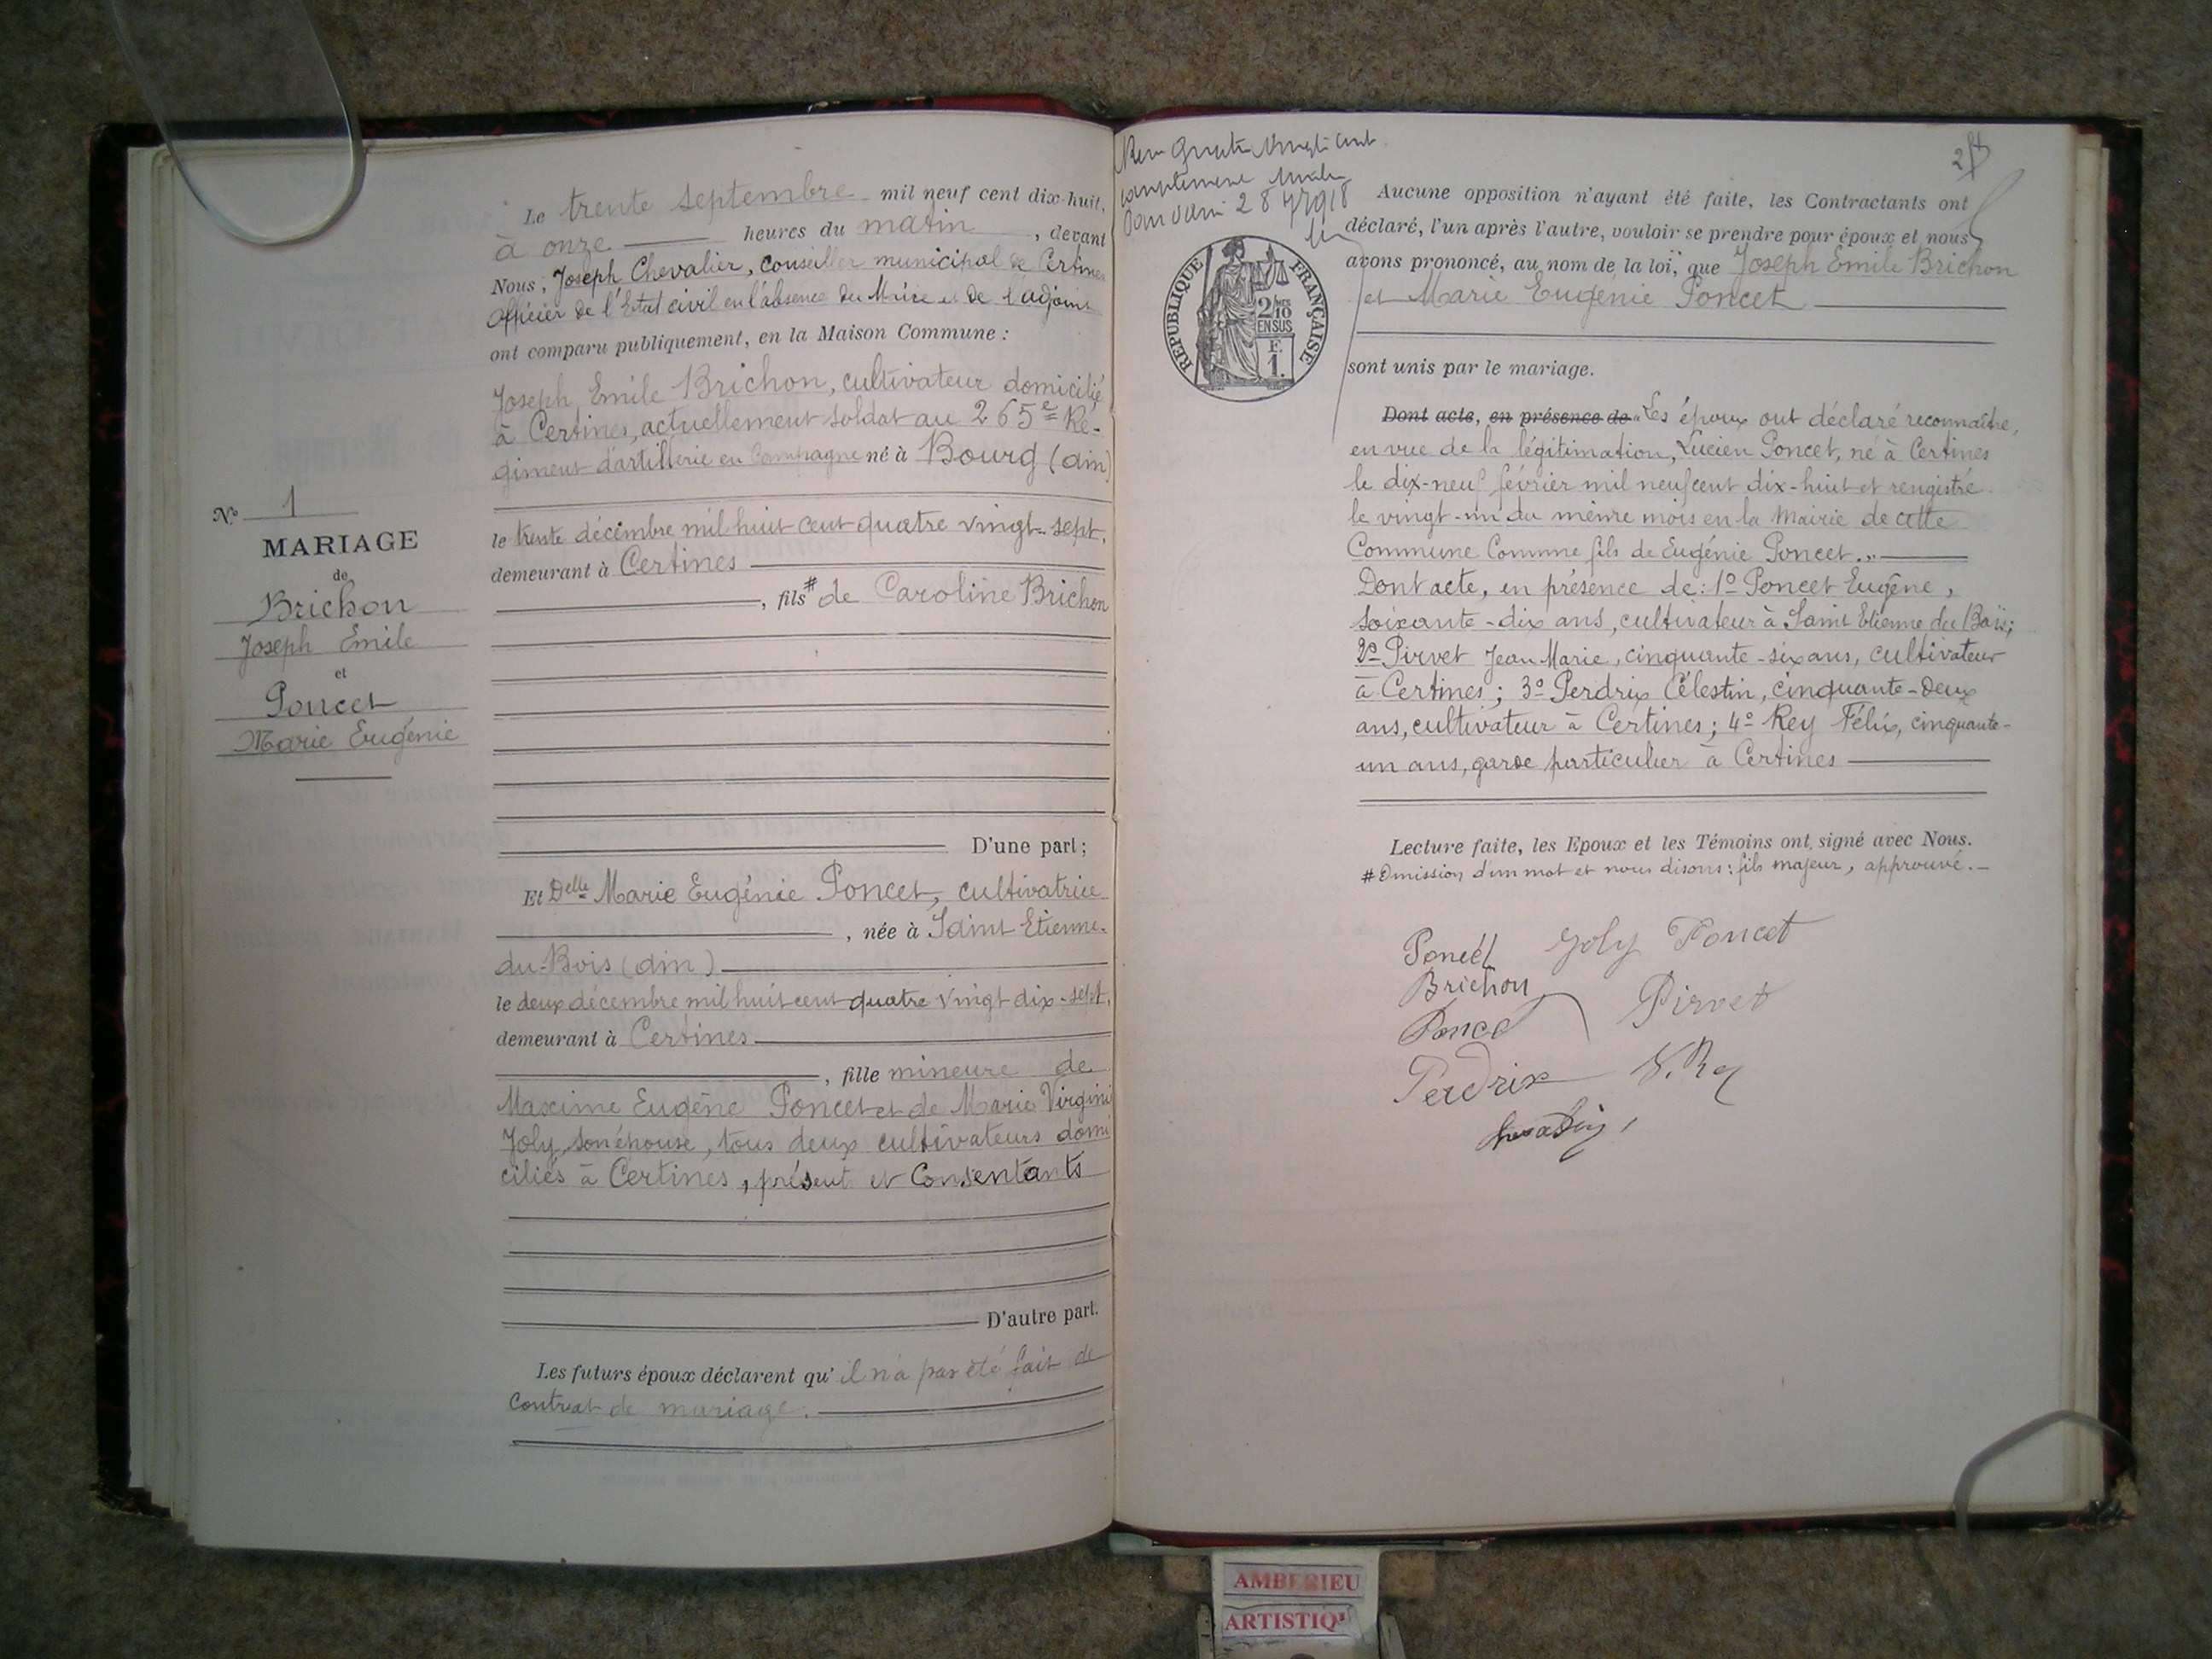 N° 1
MARIAGE
de
Brichon
Joseph Emile
et
Poncet
Marie Eugénie
Le trente septembre mil neuf cent dix-huit,
à onze heures du matin, devant
Nous, Joseph Chevalier, Conseiller municipal de Certines
officier de l'Etat civil en l'absence du Maire et de l'adjoint
ont comparu publiquement, en la Maison Commune :
Joseph Emile Brichon, cultivateur domicilié
à Certines, actuellement soldat au 265e Ré-
giment d'artillerie en Campagne né à Bourg (Ain)
le trente décembre mil huit cent quatre vingt-sept,
demeurant à Certines
, fils # de Caroline Brichon
D'une part ;
Et Delle Marie Eugénie Poncet, cultivatrice
, née à Saint Etienne-
du-Bois (Ain)
le deux décembre mil huit cent quatre vingt dix-sept,
demeurant à Certines
, fille mineure de
Maxime Eugène Poncet et de Marie Virgini
Joly, son épouse, tous deux cultivateurs domi
ciliés à Certines, présent et Consentants
D'autre part.
Les futurs époux déclarent qu'il n'a pas été fait de
Contrat de mariage.
quatre vingt
28
2
REPUBLIQUE FRANÇAISE
2/10
EN SUS
F.
1.
Aucune opposition n'ayant été faite, les Contractants ont
déclaré, l'un après l'autre, vouloir se prendre pour époux et nous
avons prononcé, au nom de la loi, que Joseph Emile Brichon
et Marie Eugénie Poncet
sont unis par le mariage.
Dont acte, en présence de "Les époux ont déclaré reconnaître,
en vue de la légitimation, Lucien Poncet, né à Certines
le dix-neuf février mil neuf cent dix-huit et rengistré
le vingt-un du même mois en la Mairie de cette
Commune Comme fils de Eugénie Poncet."
Dont acte, en présence de : 1° Poncet Eugène,
soixante-dix ans, cultivateur à Saint Etienne du Bois;
2° Pirvet Jean Marie, cinquante-six ans, cultivateur
à Certines ; 3° Perdrix Célestin, cinquante-deux
ans, cultivateur à Certines ; 4° Rey Félix, cinquante-
un ans, garde particulier à Certines
Lecture faite, les Epoux et les Témoins ont signé avec Nous.
# Omission d'un mot et nous disons : fils majeur, approuvé.
Poncet Joly Poncet
Brichon
Pirvet
Poncet
Perdrix
AMBERIEU
ARTISTIQU